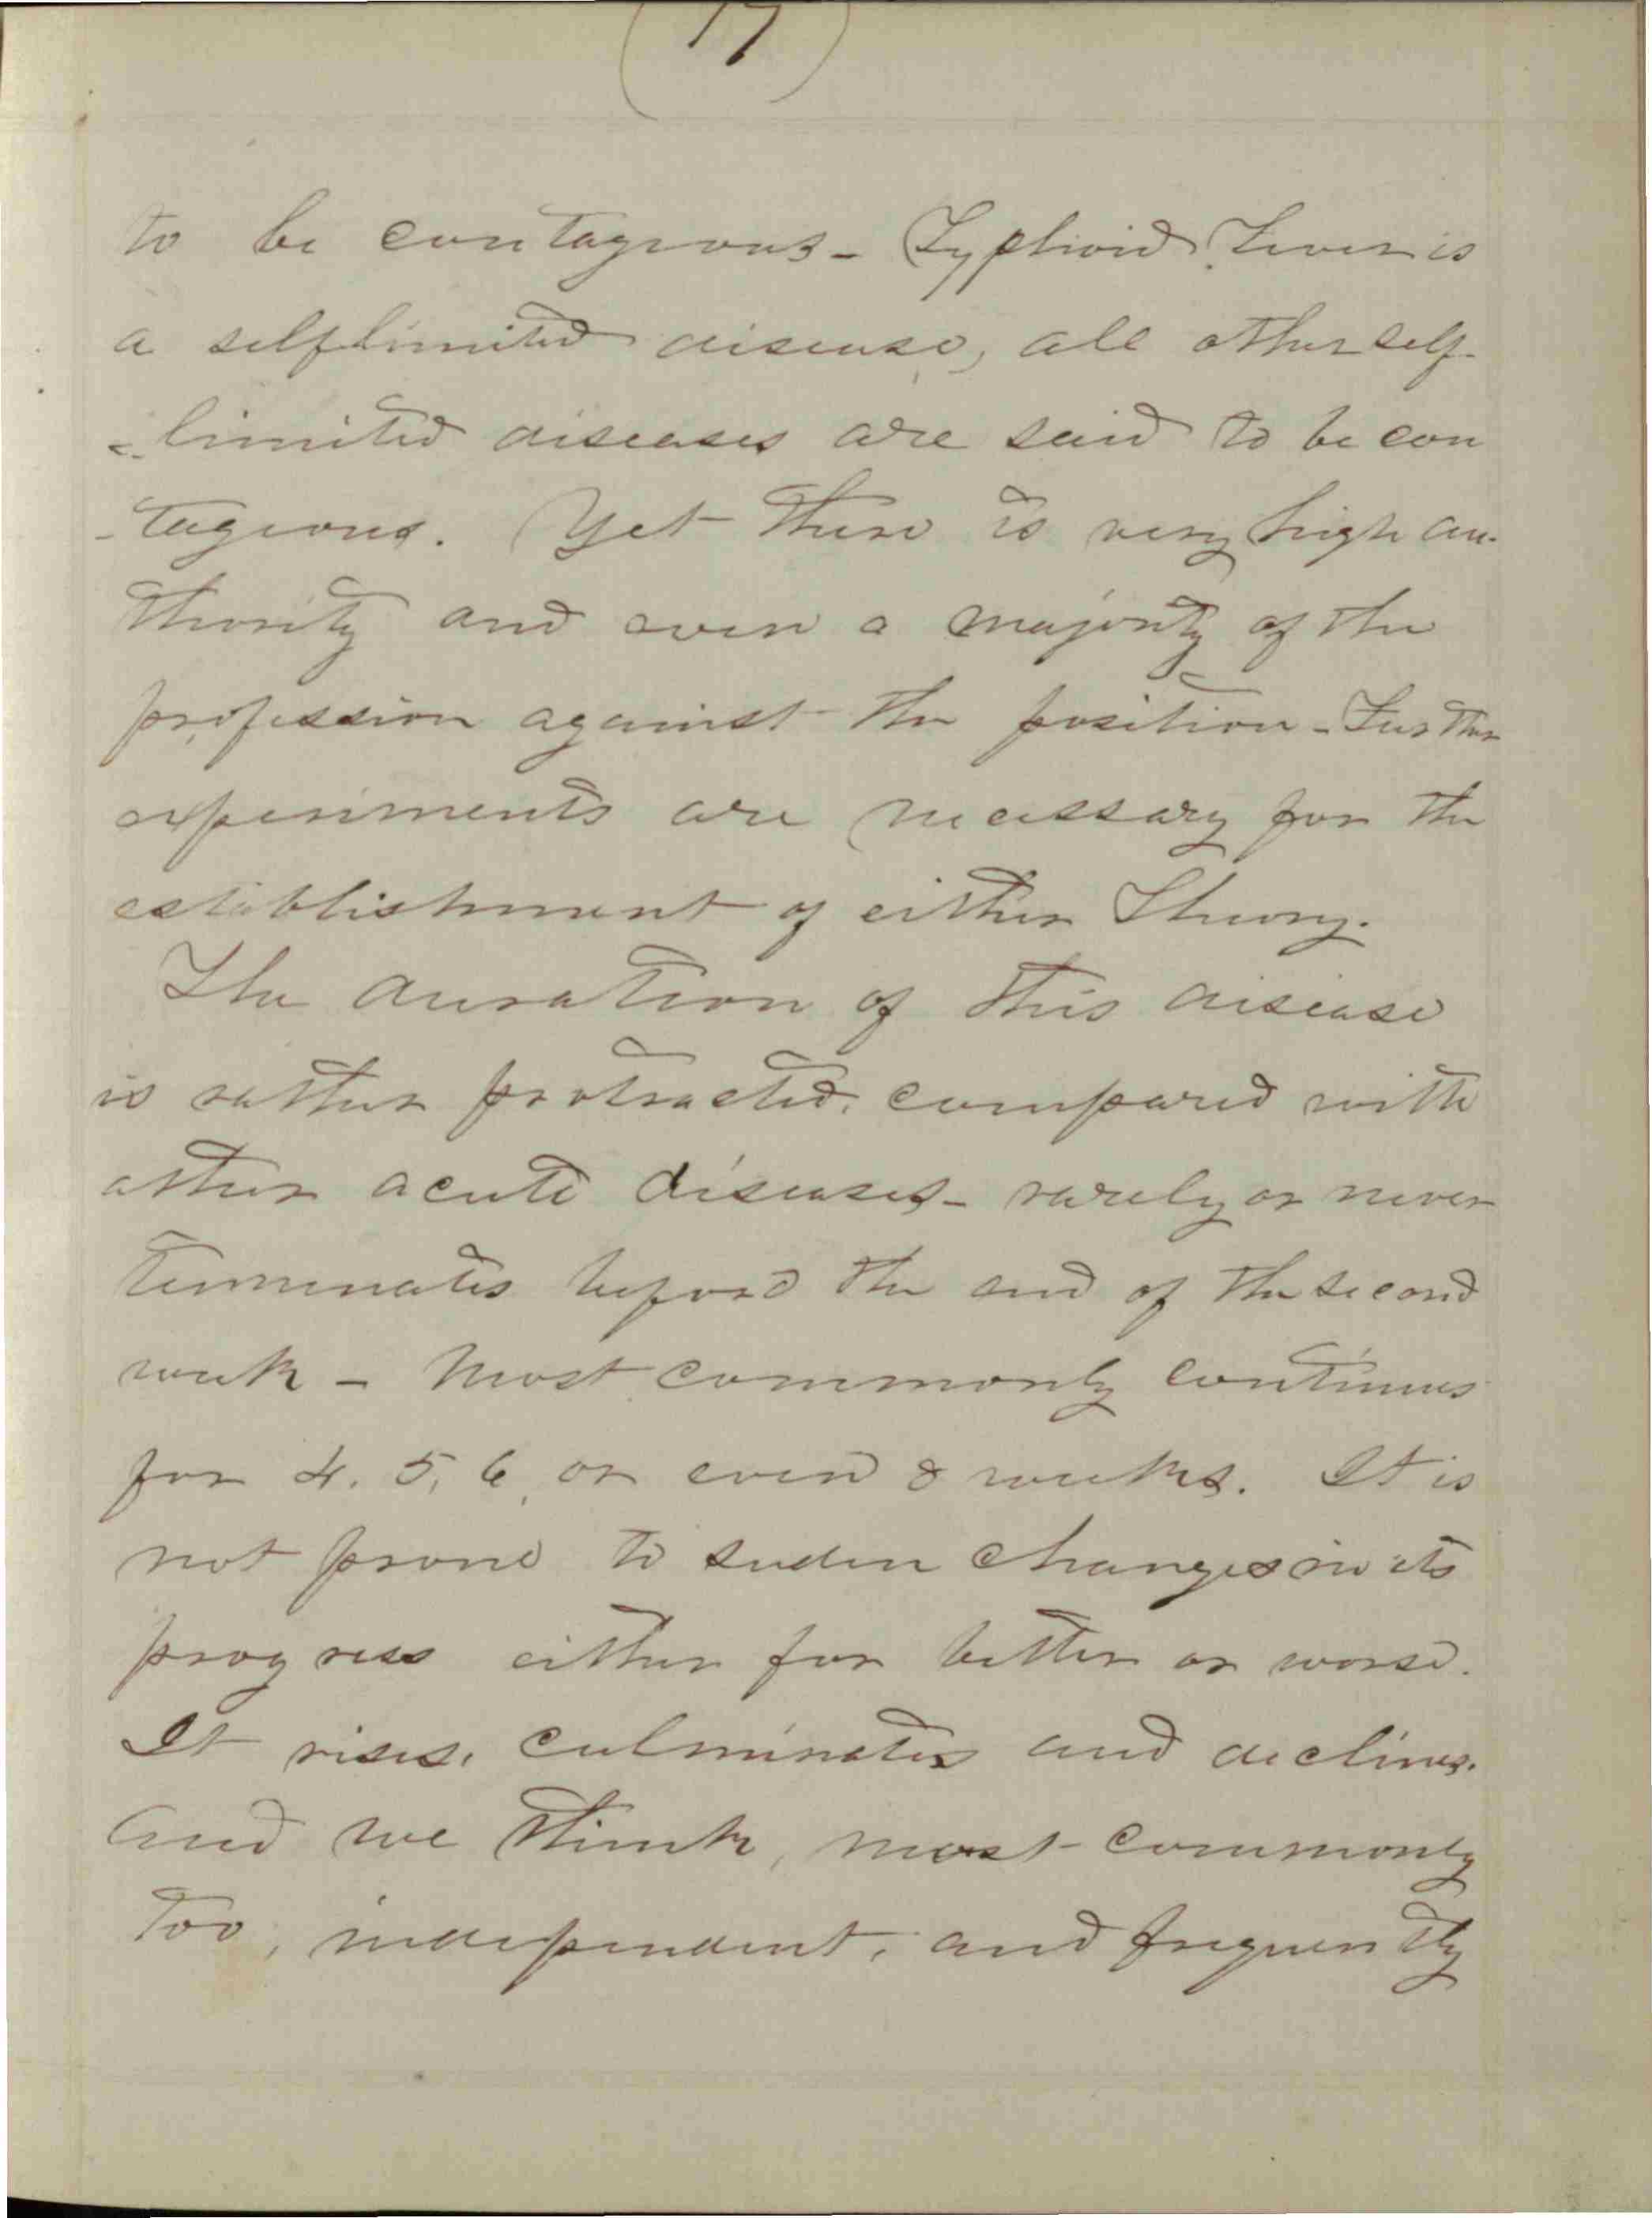 (17)
to be contagious - Typhoid Fever is
a selflimited disease, all other self-
-limited diseases are said to be con
-tagious. Yet there is very high au-
thority and even a majority of the
profession against the position - Further
experiments are necessary for the
establishment of either Theory.
The duration of this disease
is rather protracted, compared with
other acute diseases - rarely or never
terminates before the end of the second
week - Most commonly continues
for 4. 5, 6, or even 8 weeks. It is
not prone to suden changes in its
progress either for better or worse.
It rises, culminates and declines.
and we think, most commonly
too, independent, and frequently